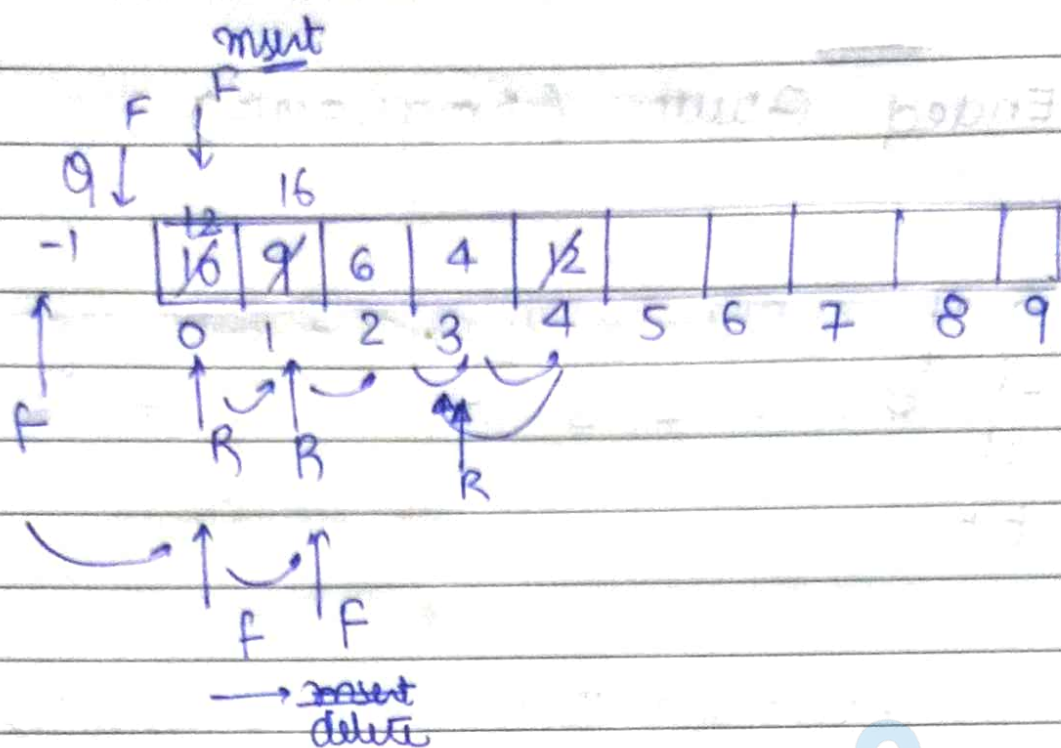 Insert
F
F
Q
16
12
-1
16 9 6 4 12
0 1 2 3 4 5 6 7 8 9
F
R R
R
F F
insert
delete